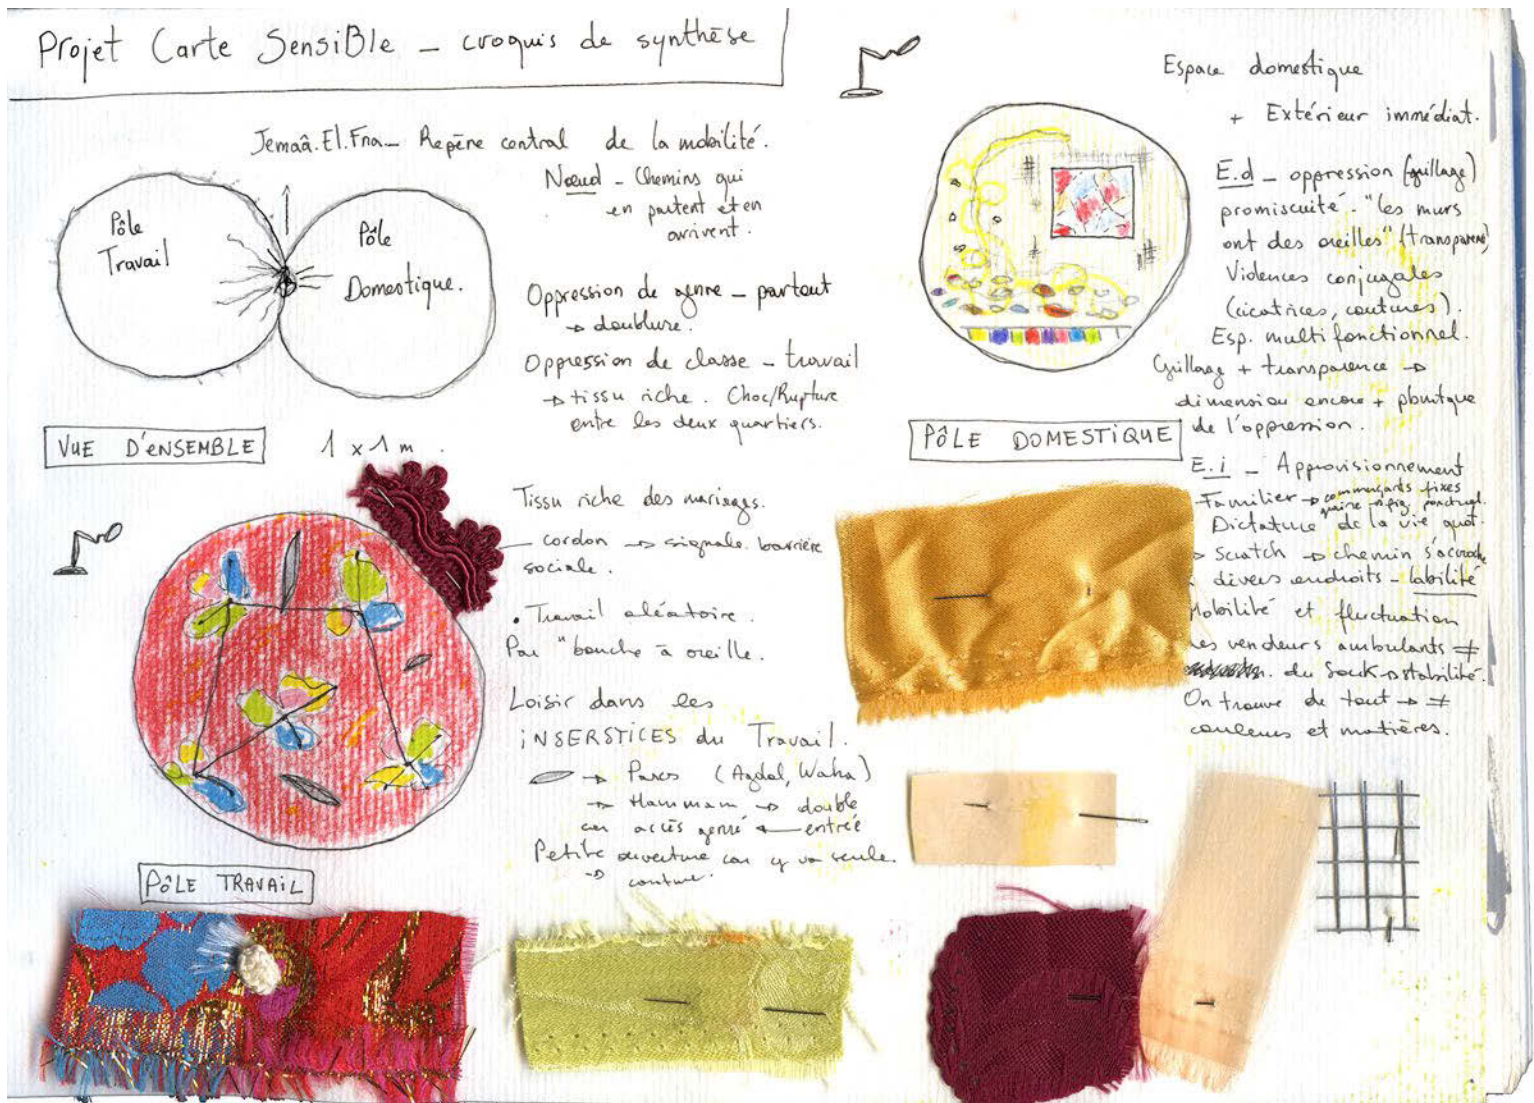 Projet Carte SensiBle – croquis de synthèse
Jemaâ.El.Fna – Repère central de la mobilité.
Nœud – Chemins qui
en partent et en
arrivent.
Pôle
Travail
Pôle
Domestique.
Oppression de genre – partout
→ doublure.
Oppression de classe – travail
→ tissu riche. Choc/Rupture
entre les deux quartiers.
VUE D'ENSEMBLE
1 x 1 m.
Tissu riche des mariages.
cordon → signale barrière
sociale.
• Travail aléatoire.
Par "bouche à oreille.
Loisir dans les
iNSERSTiCES du Travail.
→ Parcs (Agdal, Waha)
→ Hammam → double
car accès genré ← entrée
Petite ouverture car y va seule.
→ couture.
PÔLE TRAVAIL
Espace domestique
+ Extérieur immédiat.
E.d – oppression (grillage)
promiscuité. "les murs
ont des oreilles" (transparence)
Violences conjugales
(cicatrices, coutures).
Esp. multifonctionnel.
Grillage + transparence →
dimension encore +
de l'oppression.
PÔLE DOMESTIQUE
E.i – Approvisionnement
Familier → commerçants fixes
Dictature de la vie quot.
→ Scratch → chemin s'accroche
à divers endroits – labilité
Mobilité et fluctuation
des vendeurs ambulants ≠
du Souk → stabilité.
On trouve de tout → ≠
couleurs et matières.